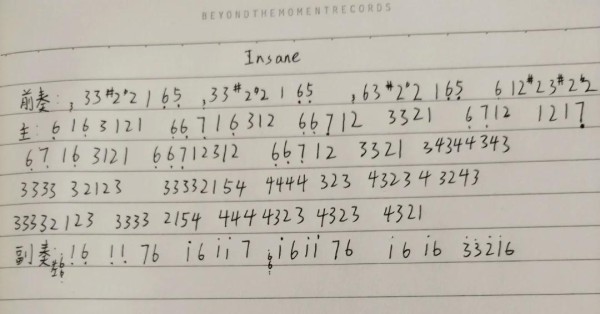 BEYONDTHEMOMENTRECORDS
Insane
前奏: , 33#2♮2 1 6̣5̣ , 33#2♮2 1 6̣5̣ , 63#2♮2 1 6̣5̣ 6 12#23#2♮2
主: 6̣ 1 6̣ 3 121 6̣6̣ 7̣ 1 6̣ 312 6̣6̣7̣12 3321 6̣7̣12 1217̣
6̣7̣ 16̣ 3121 6̣6̣7̣12312 6̣6̣7̣12 3321 34344343
3333 32123 33332154 4444 323 432343243
33332123 3333 2154 4444323 4323 4321
副奏: i̇6 i̇i̇ 76 i̇6i̇i̇7 i̇6i̇i̇76 i̇6i̇6 3̇3̇2̇i̇6